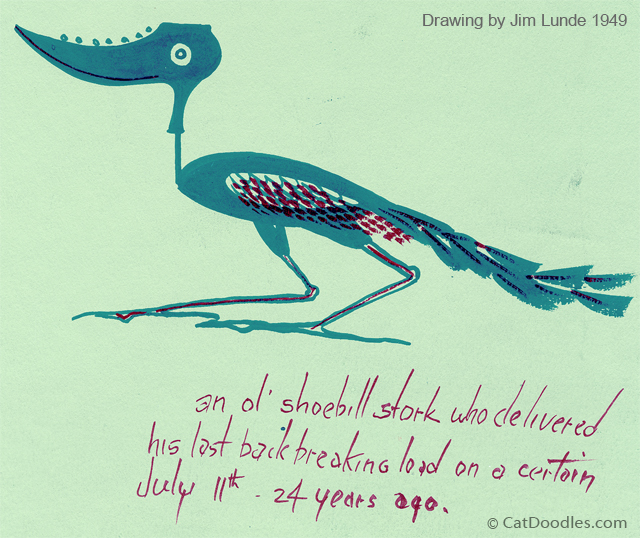 Drawing by Jim Lunde 1949
an ol' shoebill stork who delivered
his last back breaking load on a certain
July 11th - 24 years ago.
© CatDoodles.com